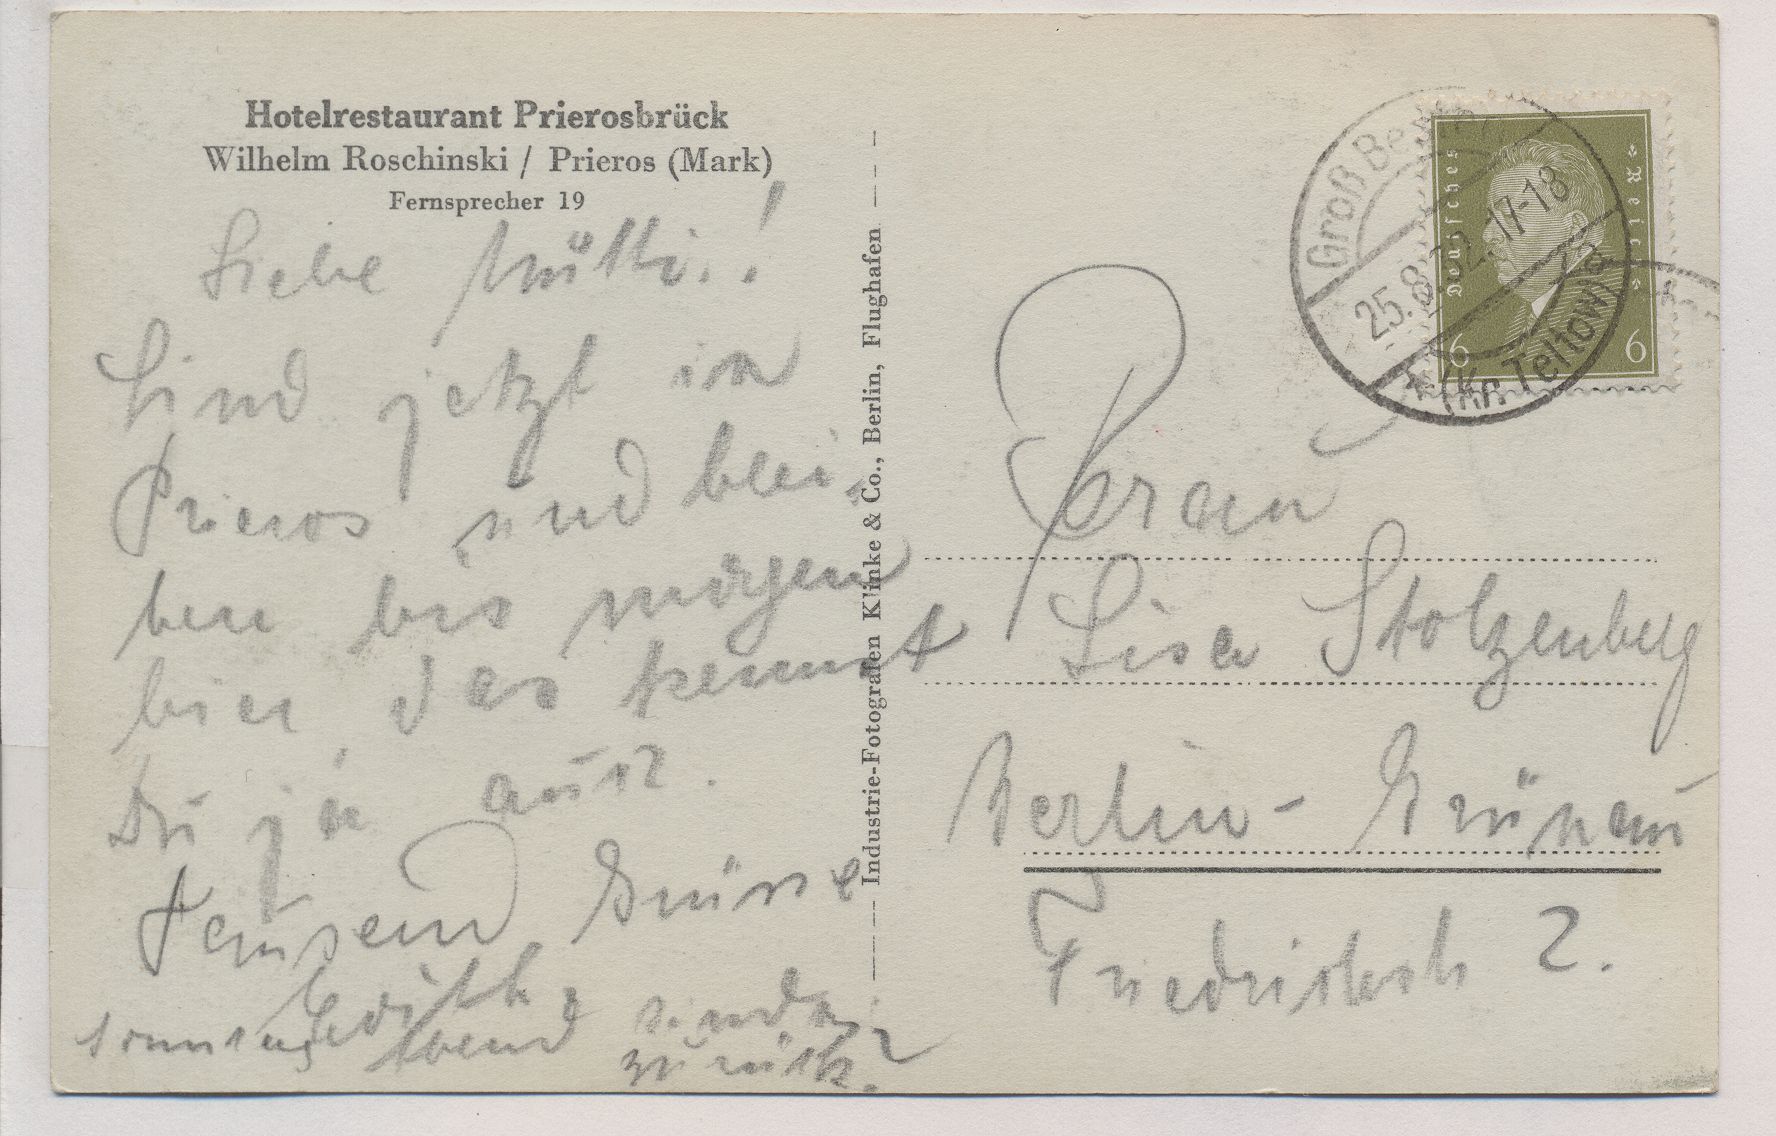 Hotelrestaurant Prierosbrück
Wilhelm Roschinski / Prieros (Mark)
Fernsprecher 19
Liebe Mutti!
Sind jetzt in
Prieros und blei-
ben bis morgen
hier das kennst
Du ja
Tausend Grüsse
Edith
sonntag abend sind
zurück.
Industrie-Fotografen Klinke & Co., Berlin, Flughafen
Groß Be
25.8.32.17-18
(Kr. Teltow)
Deutsches Reich
6 6
Frau
Lisa Stolzenberg
Berlin-Grünau
Friedrichstr 2.